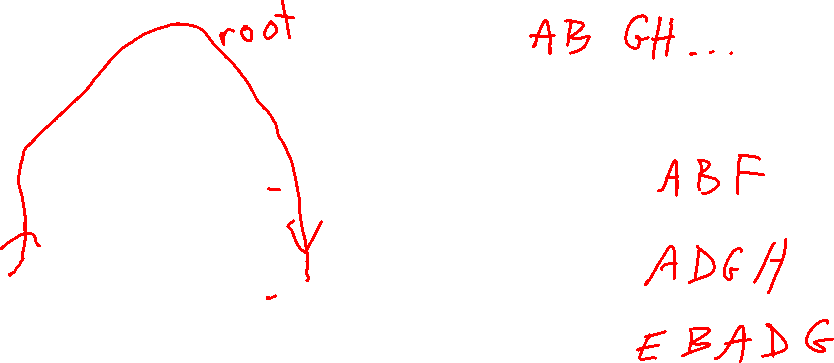 root
AB GH...
ABF
ADGH
EBADG